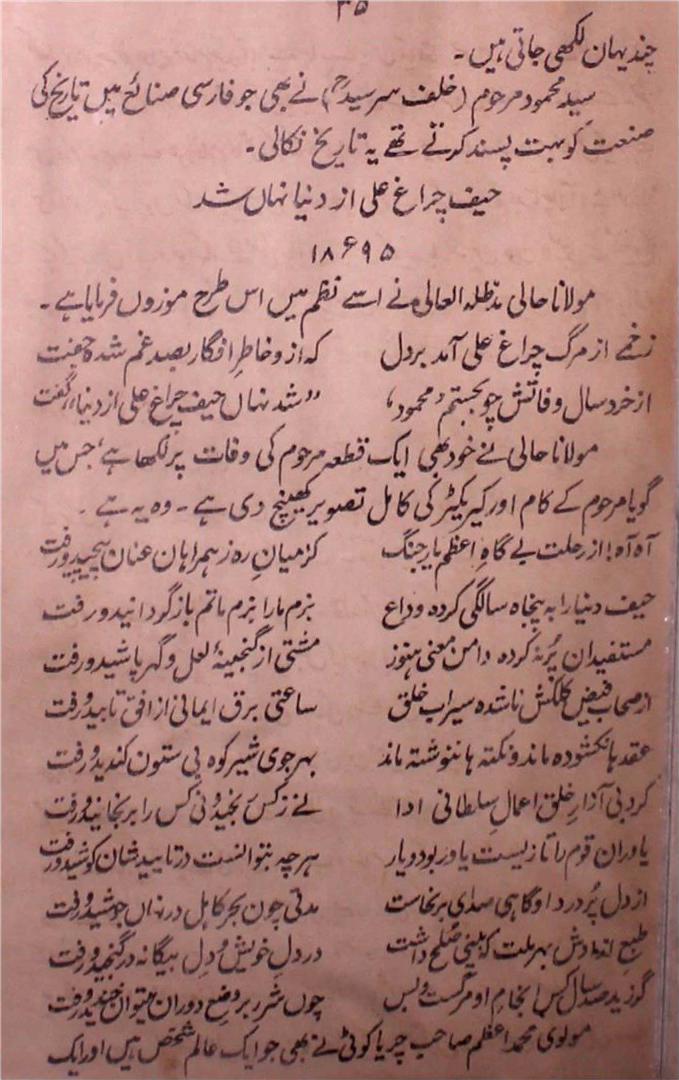 ۳۵
چند یہان لکھی جاتی ہیں۔
سید محمود مرحوم (خلف سر سیدؒ) نے بھی جو فارسی صنائع میں تاریخ کی
صنعت کو بہت پسند کرتے تھے یہ تاریخ نکالی۔
حیف چراغ علی از دنیا نہاں شد
۱۸۹۵ء
مولانا حالی مدظلہ العالی نے اسے نظم میں اس طرح موزوں فرمایا ہے۔
زخمے از مرگ چراغ علی آمد بر دل که ازو خاطر افگار بصد غم شده جفت
از خرد سال وفاتش چو بجستم 'محمود' "شد نہاں حیف چراغ علی از دنیا" گفت
مولانا حالی نے خود بھی ایک قطعہ مرحوم کی وفات پر لکھا ہے، جس میں
گویا مرحوم کے کام اور کیریکٹر کی کامل تصویر کھینچ دی ہے۔ وہ یہ ہے۔
آه آه! از رحلت بے گاهِ اعظم یار جنگ کز میانِ ره ز همراہان عنان پیچید و رفت
حیف دنیا را به پنجاه سالگی کرده وداع بزم ما را بزم ماتم باز گردانید و رفت
مستفیدان پُر نہ کرده دامن معنی ہنوز مشتی از گنجینۂ لعل و گہر پاشید و رفت
از سحاب فیض کلکش ناشده سیراب خلق ساعتی برق ایمانی از افق تابید و رفت
عقدہا نکشوده ماند و نکتہ ہا ننوشتہ ماند بہر جوی شیر کوہ بی ستون کندید و رفت
کرد بی آزارِ خلق اعمالِ سلطانی ادا نے ز کس رنجید و نی کس را برنجانید و رفت
یاوران قوم را تا زیست یاور بود و یار ہر چہ بتوانست در تایید شان کوشید و رفت
از دل پُر درد او گاہی صدای برنخاست مدتی چون بحر کاہل در نہاں جوشید و رفت
طبع داشت در دل خویش و دل بیگانہ در گنجید و رفت
گر زید صد سال کس انجامِ او مرگست و بس چوں شرر بر وضع دوران میتوان خندید و رفت
مولوی محمد اعظم صاحب چریاکوٹی نے بھی جو ایک عالم شخص ہیں اور ایک